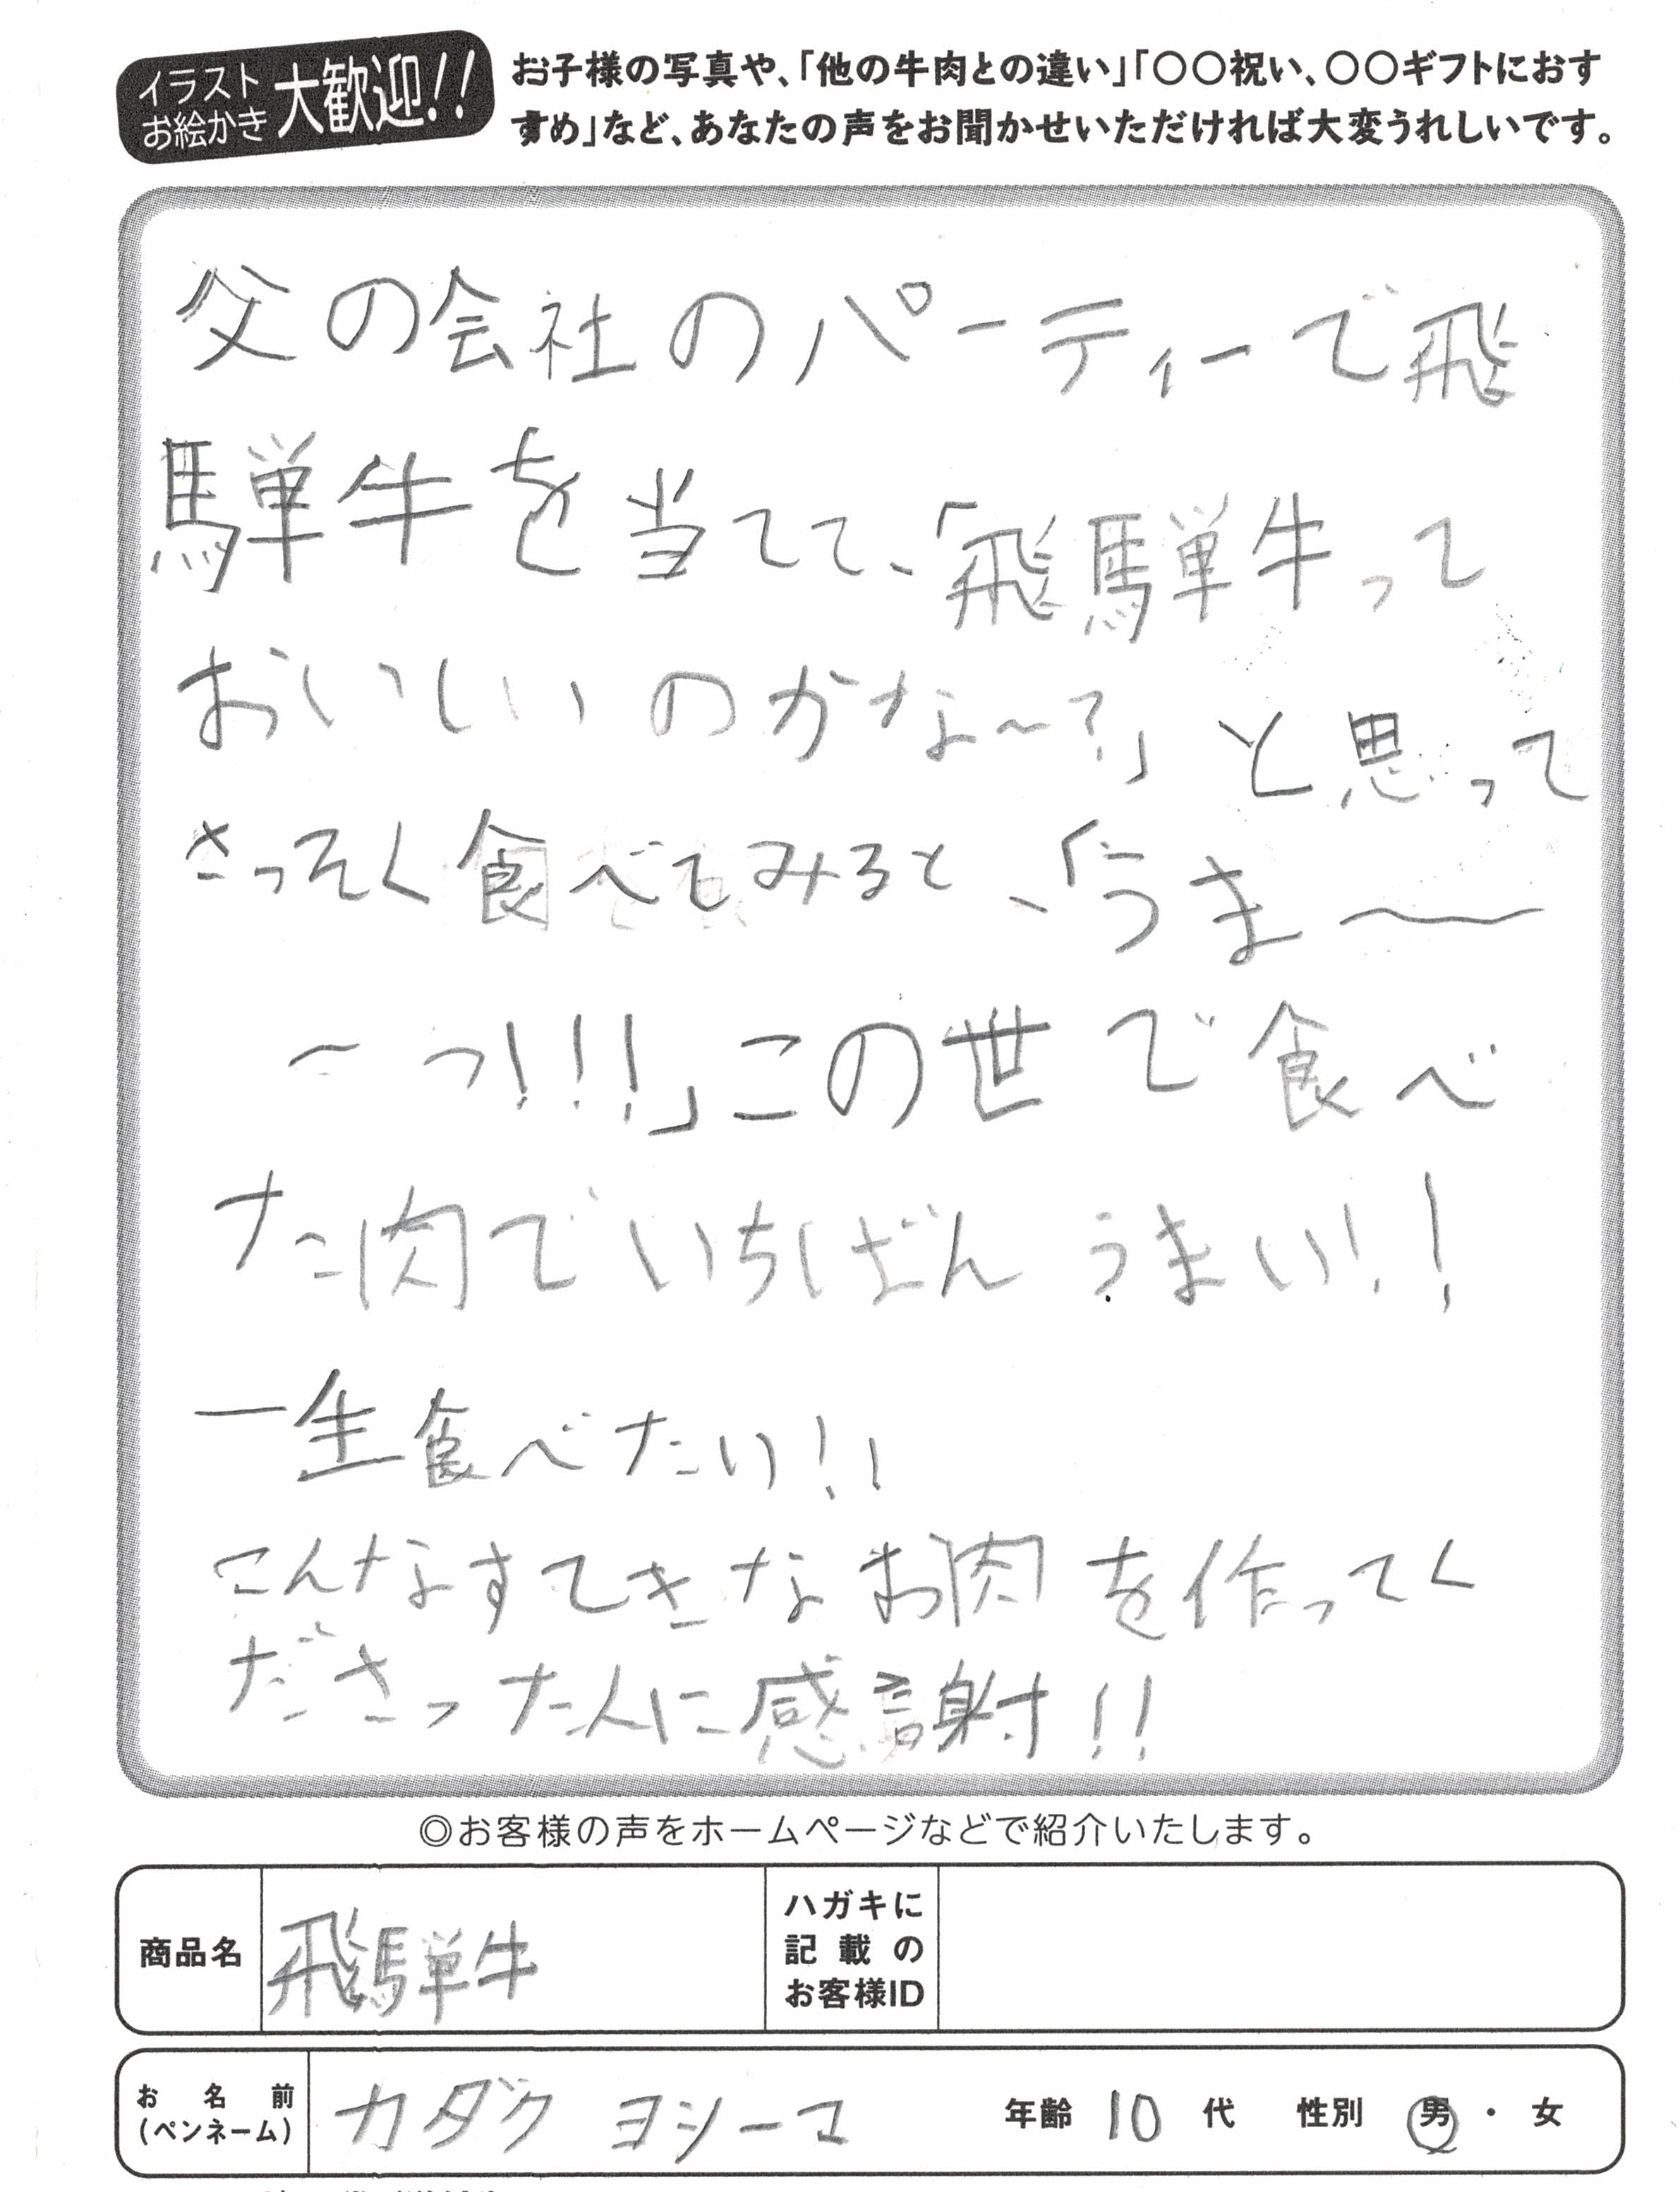 イラスト
お絵かき
大歓迎!!
お子様の写真や、「他の牛肉との違い」「〇〇祝い、〇〇ギフトにおす
すめ」など、あなたの声をお聞かせいただければ大変うれしいです。
父の会社のパーティーで飛
騨牛を当てて、「飛騨牛って
おいしいのかな〜?」と思って
さっそく食べてみると、「うま〜
〜っ!!!」この世で食べ
た肉でいちばんうまい!!
一生食べたい!!
こんなすてきなお肉を作ってく
ださった人に感謝!!
◎お客様の声をホームページなどで紹介いたします。
商品名 飛騨牛
ハガキに
記載の
お客様ID
お名前
(ペンネーム)
カダク ヨシーマ
年齢 10 代 性別 男・女